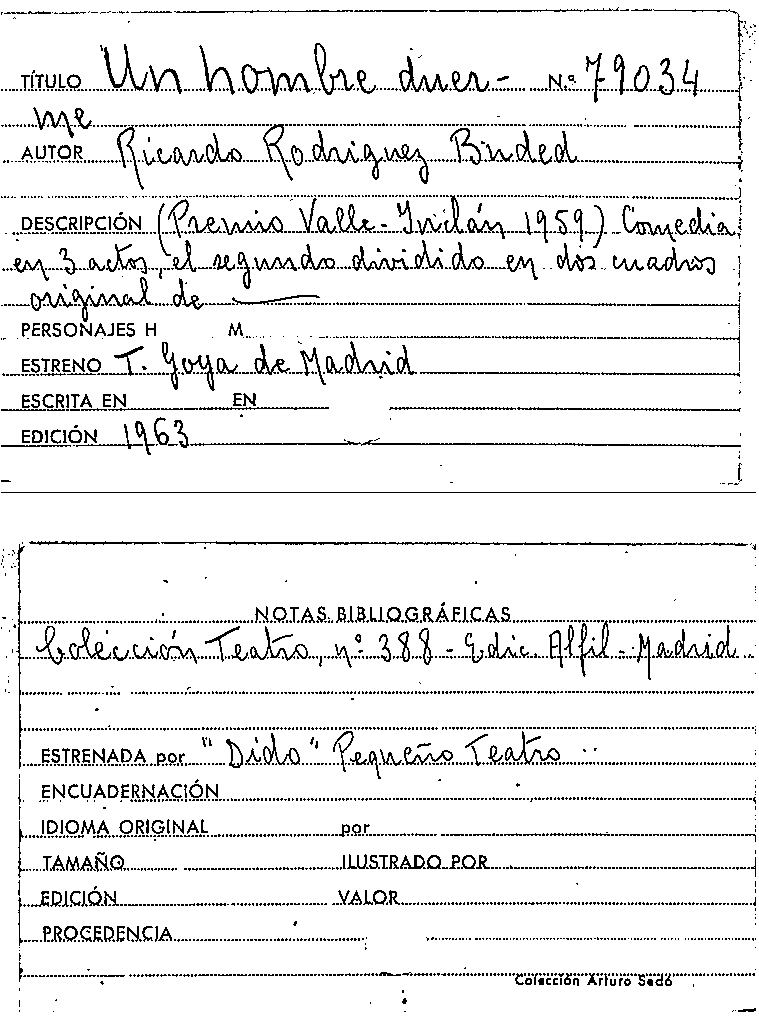 TÍTULO Un hombre duer- N.º 79034
me
AUTOR Ricardo Rodriguez Buded
DESCRIPCIÓN (Premio Valle-Inclán 1959) Comedia
en 3 actos, el segundo dividido en dos cuadros
original de ———
PERSONAJES H M
ESTRENO T. Goya de Madrid
ESCRITA EN EN
EDICIÓN 1963
NOTAS BIBLIOGRÁFICAS
Colección Teatro, nº 388 - Edic. Alfil - Madrid
ESTRENADA por "Dido" Pequeño Teatro
ENCUADERNACIÓN
IDIOMA ORIGINAL por
TAMAÑO ILUSTRADO POR
EDICIÓN VALOR
PROCEDENCIA
Colección Arturo Sedó